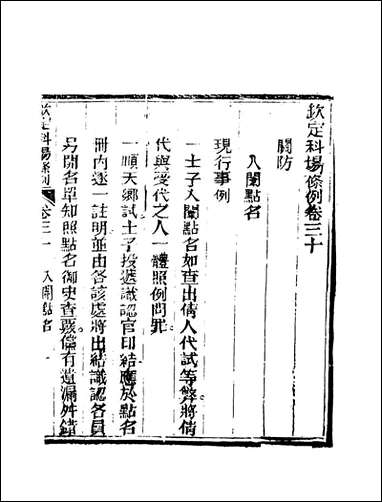 欽定科場條例卷三十
關防
入闈點名
現行事例
一士子入闈點名如查出倩人代試等弊將倩
代與受代之人一體照例問罪
一順天鄉試士子投遞識認官印結應於點名
冊內逐一註明並由各該處將出結識認各員
另開名單知照點名御史查覈儻有遺漏舛錯
欽定科場條例 卷三十 入闈點名 一